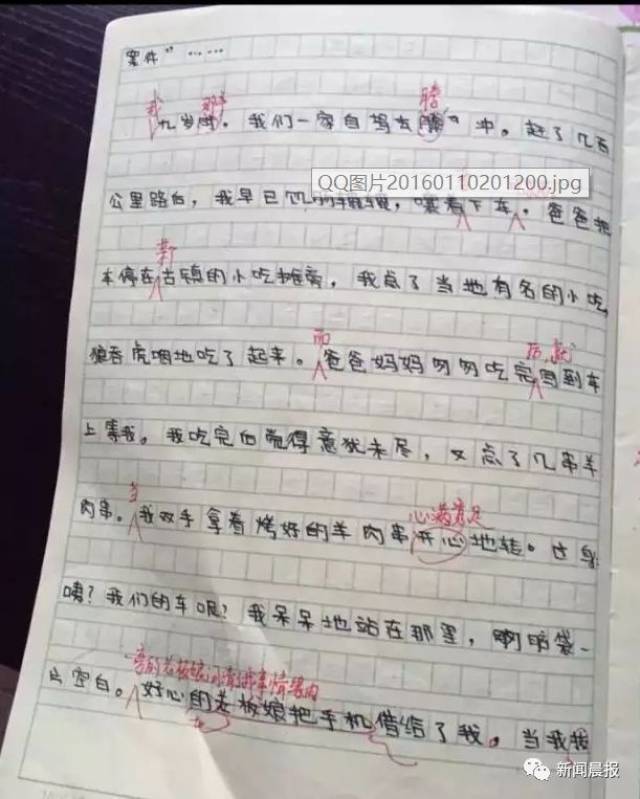 案件”……
我 那年 腾
九岁时。我们一家自驾去腾冲。赶了几百
QQ图片20160110201200.jpg
公里路后,我早已饥肠辘辘,嚷着下车,爸爸把
车停在古镇的小吃摊旁,我点了当地有名的小吃
而 后,就
狼吞虎咽地吃了起来。爸爸妈妈匆匆吃完回到车
上等我。我吃完后觉得意犹未尽,又点了几串羊
当 心满意足
肉串。我双手拿着烤好的羊肉串开心地转过身
咦?我们的车呢?我呆呆地站在那里,脑袋一
旁的老板娘
片空白。好心的老板娘把手机借给了我。当我
新闻晨报